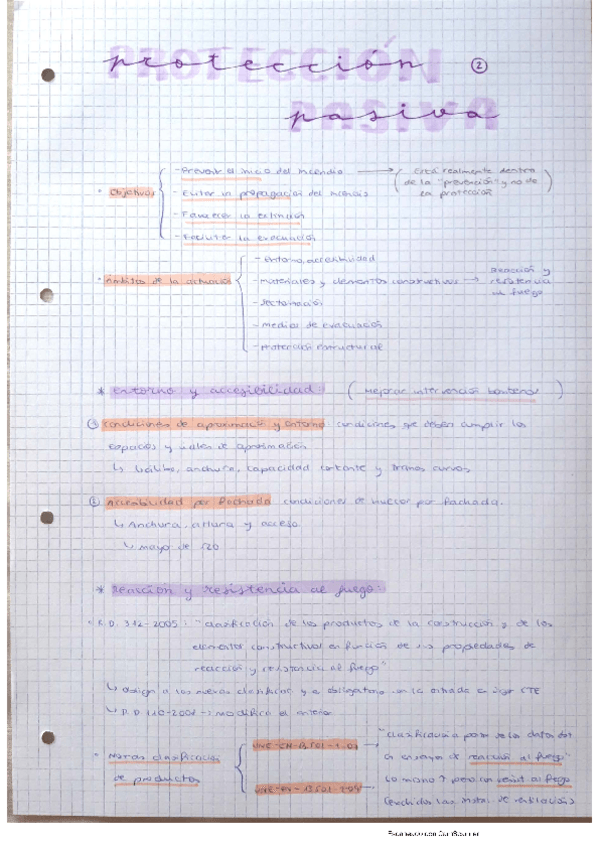 protección 2
pasiva
· Objetivos
- Prevenir el inicio del incendio → (Está realmente dentro
de la "prevención" y no de
la protección)
- Evitar la propagación del incendio
- Favorecer la extinción
- Facilitar la evacuación
· Ámbitos de la actuación
- entorno, accesibilidad
- materiales y elementos constructivos → reacción y
resistencia
al fuego
- sectorización
- medios de evacuación
- protección estructural
* entorno y accesibilidad: (mejorar intervención bomberos)
① condiciones de aproximación y entorno condiciones que deben cumplir los
espacios y viales de aproximación
↳ gálibo, anchura, capacidad portante y tramos curvos
② Accesibilidad por fachada condiciones de huecos por fachada.
↳ Anchura, altura y acceso
* reacción y resistencia al fuego:
· R.D. 312-2005: "clasificación de los productos de la construcción y de los
elementos constructivos en función de sus propiedades de
reacción y resistencia al fuego"
↳ R.D 110-2008 → modifica el anterior
· Normas clasificación
de productos
UNE-EN-13501-1 → "clasificación a partir de los datos
en ensayos de reacción al fuego"
lo mismo ↑ pero con resist al fuego